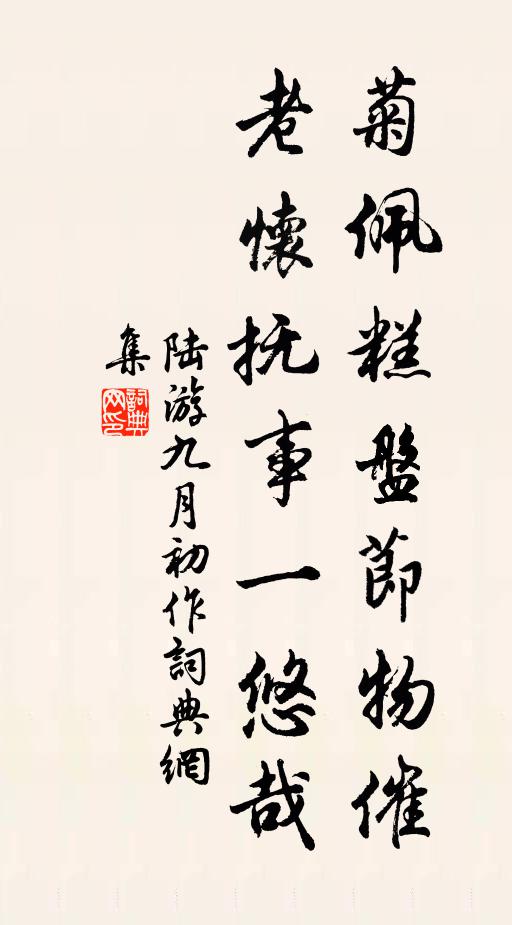 菊佩糕盤節物催
老懷抚事一悠哉
陆游九月初作詞典網
集
詞典网印